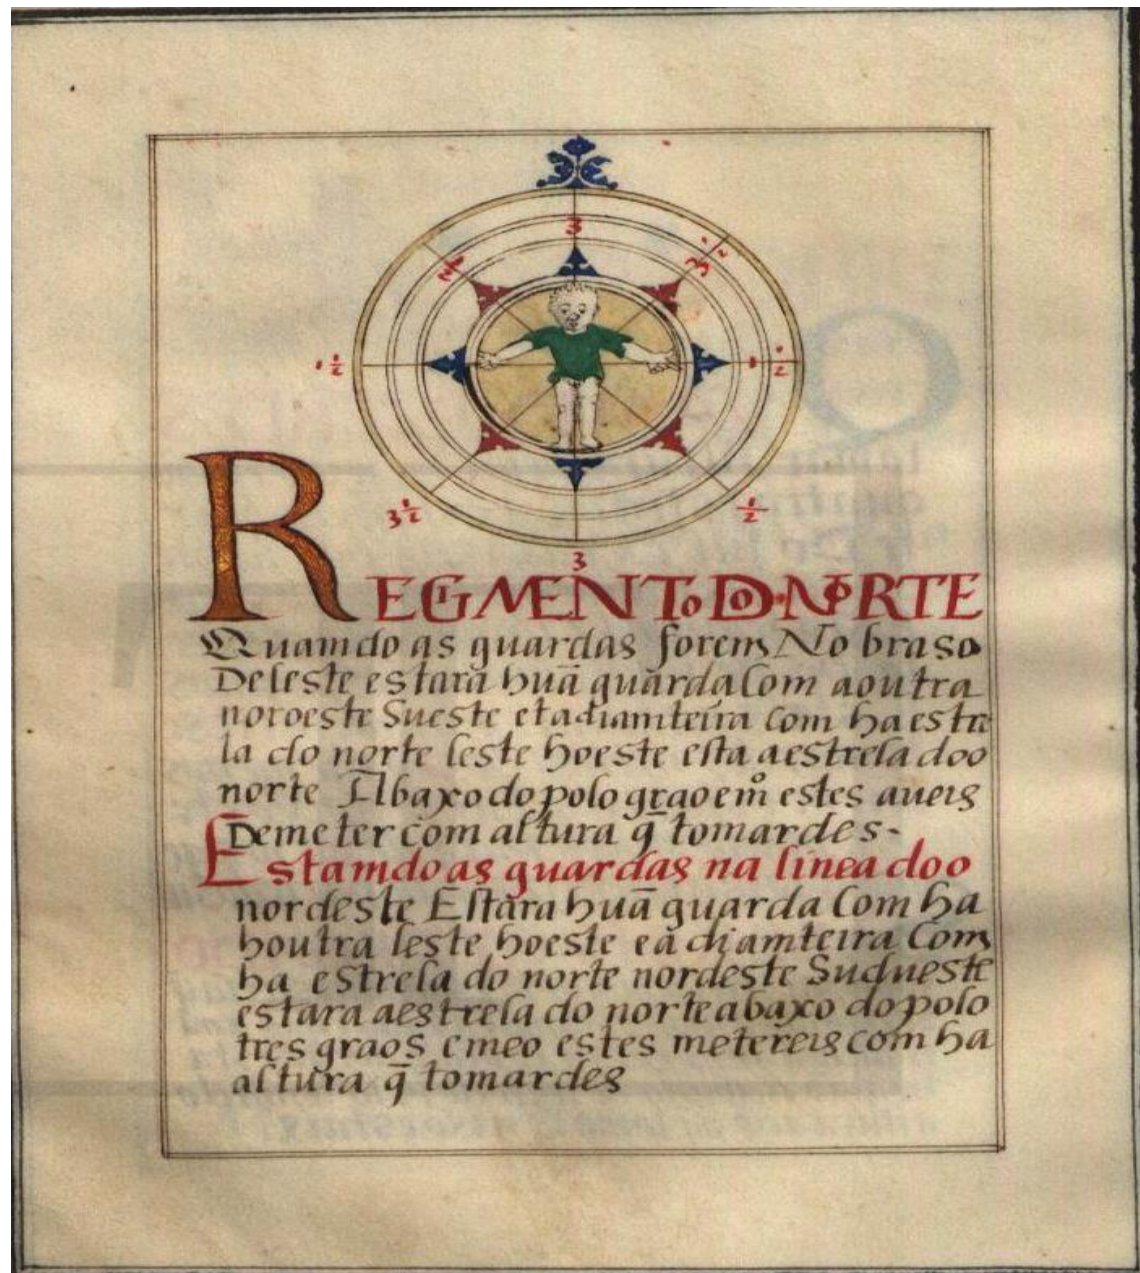 3
3 1/2
1 1/2
1 1/2
3 1/2
1/2
3
REGIMENTO DO NORTE
Quamdo as guardas forem No braso
De leste estara huã guarda Com a outra
noroeste Sueste e ta diamteira com ha estre
la do norte leste hoeste esta a estrela doo
norte Abaxo do polo grao e mº estes aueis
De meter com altura q̃ tomardes-
Estamdo as guardas na linea doo
nordeste Estara huã guarda Com ha
houtra leste hoeste e a diamteira Com
ha estrela do norte nordeste Sudueste
estara a estrela do norte abaxo do polo
tres graos e meo estes metereis com ha
altura q̃ tomardes